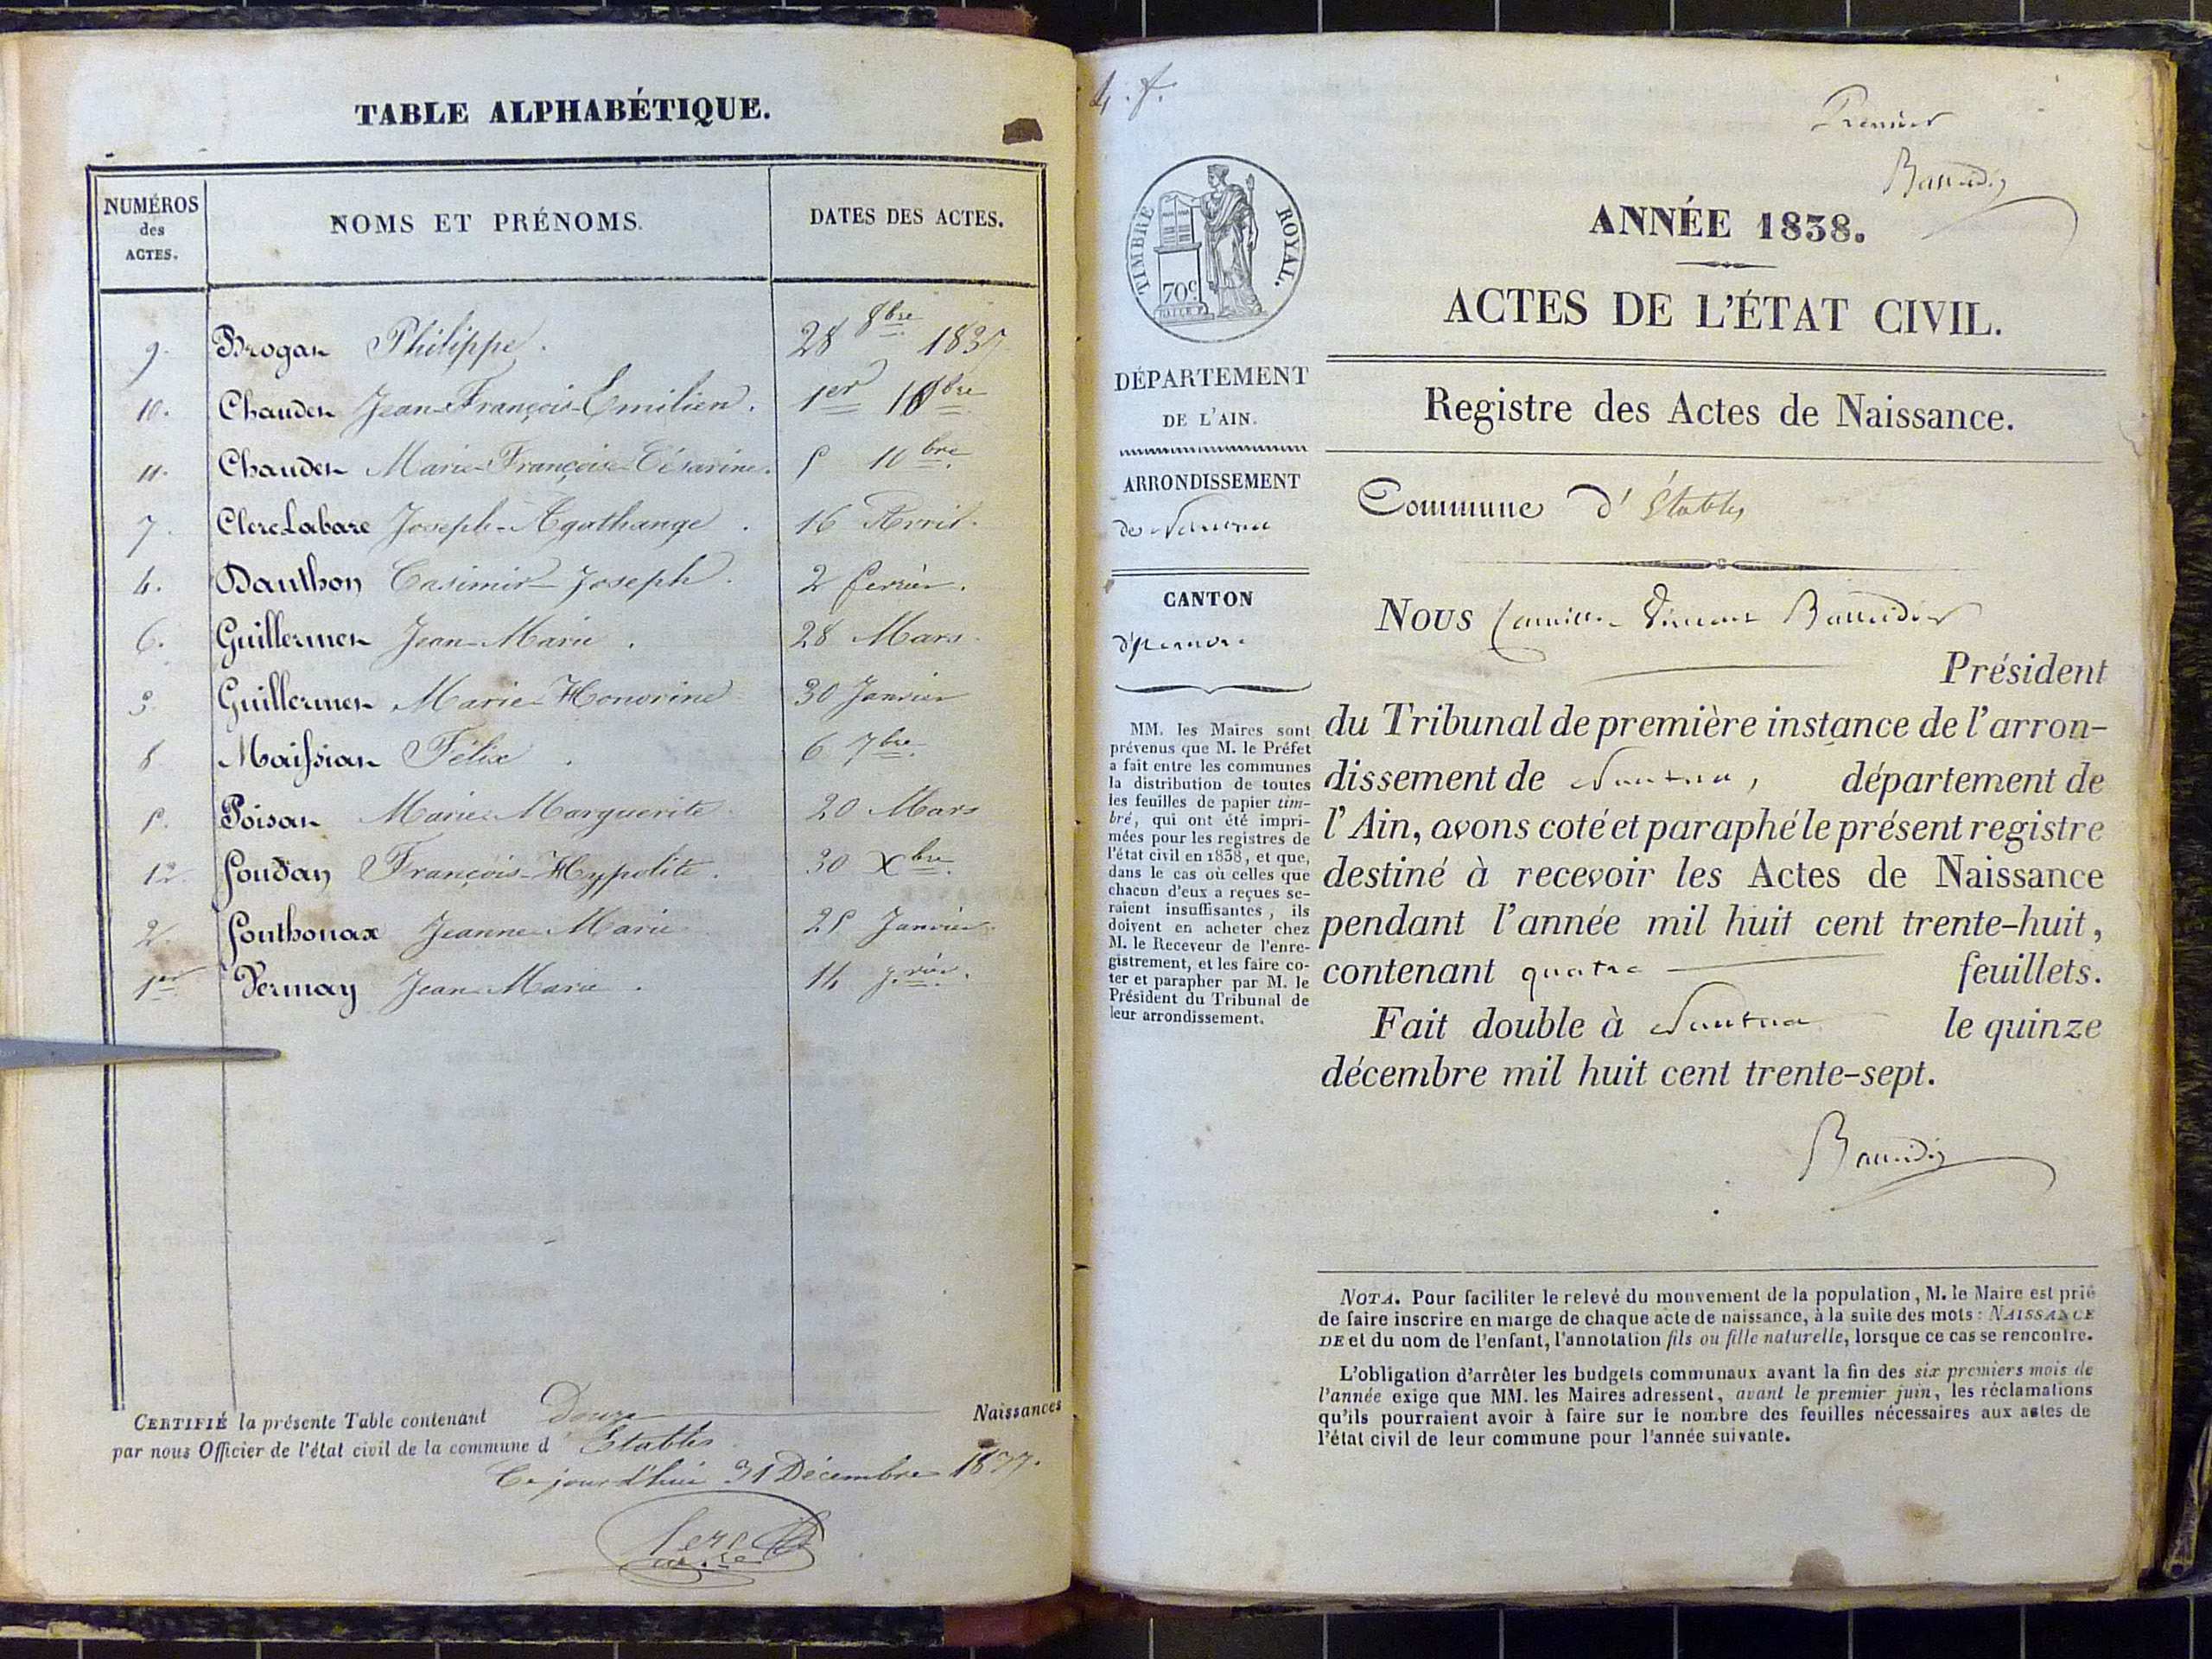 TABLE ALPHABÉTIQUE.
NUMÉROS des ACTES.
NOMS ET PRÉNOMS.
DATES DES ACTES.
9. Brogat Philippe. 28 8bre 1837
10. Chaudet Jean-François-Emilien. 1er 10bre
11. Chaudet Marie-Françoise-Césarine. 5 10bre
7. Clerc Labare Joseph-Agathange. 16 Avril.
4. Dauthon Casimir-Joseph. 2 fevrier.
6. Guillermet Jean-Marie. 28 Mars.
3. Guillermet Marie Honorine 30 Janvier
8 Maissiat Félix. 6 7bre.
5. Poisat Marie Marguerite 20 Mars
12. François-Hypolite. 30 Xbre.
2. Jeanne Marie 25 Janvier.
1er Vernay Jean Marie. 14 j.vier.
CERTIFIÉ la présente Table contenant Douze Naissances
par nous Officier de l'état civil de la commune d' Etables
Ce jourd'hui 31 Décembre 1837.
4. f.
Premier
Baudin
TIMBRE ROYAL.
70c.
ANNÉE 1838.
ACTES DE L'ÉTAT CIVIL.
DÉPARTEMENT
DE L'AIN.
Registre des Actes de Naissance.
ARRONDISSEMENT
de Nantua
Commune d' Étables
CANTON
Nous Camille Vincent
Président
du Tribunal de première instance de l'arron-
dissement de Nantua, département de
l'Ain, avons coté et paraphé le présent registre
destiné à recevoir les Actes de Naissance
pendant l'année mil huit cent trente-huit,
contenant quatre feuillets.
Fait double à Nantua le quinze
décembre mil huit cent trente-sept.
MM. les Maires sont
prévenus que M. le Préfet
a fait entre les communes
la distribution de toutes
les feuilles de papier tim-
bré, qui ont été impri-
mées pour les registres de
l'état civil en 1838, et que,
dans le cas où celles que
chacun d'eux a reçues se-
raient insuffisantes, ils
doivent en acheter chez
M. le Receveur de l'enre-
gistrement, et les faire co-
ter et parapher par M. le
Président du Tribunal de
leur arrondissement.
NOTA. Pour faciliter le relevé du mouvement de la population, M. le Maire est prié
de faire inscrire en marge de chaque acte de naissance, à la suite des mots : NAISSANCE
DE et du nom de l'enfant, l'annotation fils ou fille naturelle, lorsque ce cas se rencontre.
L'obligation d'arrêter les budgets communaux avant la fin des six premiers mois de
l'année exige que MM. les Maires adressent, avant le premier juin, les réclamations
qu'ils pourraient avoir à faire sur le nombre des feuilles nécessaires aux actes de
l'état civil de leur commune pour l'année suivante.